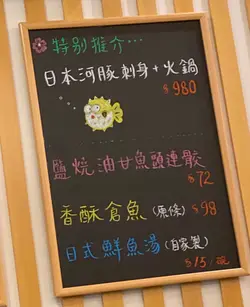 特别推介…
日本河豚刺身+火鍋
$980
鹽燒油甘魚頭連骹
$72
香酥倉魚(原條) $98
日式鮮魚湯(自家製)
$15/碗